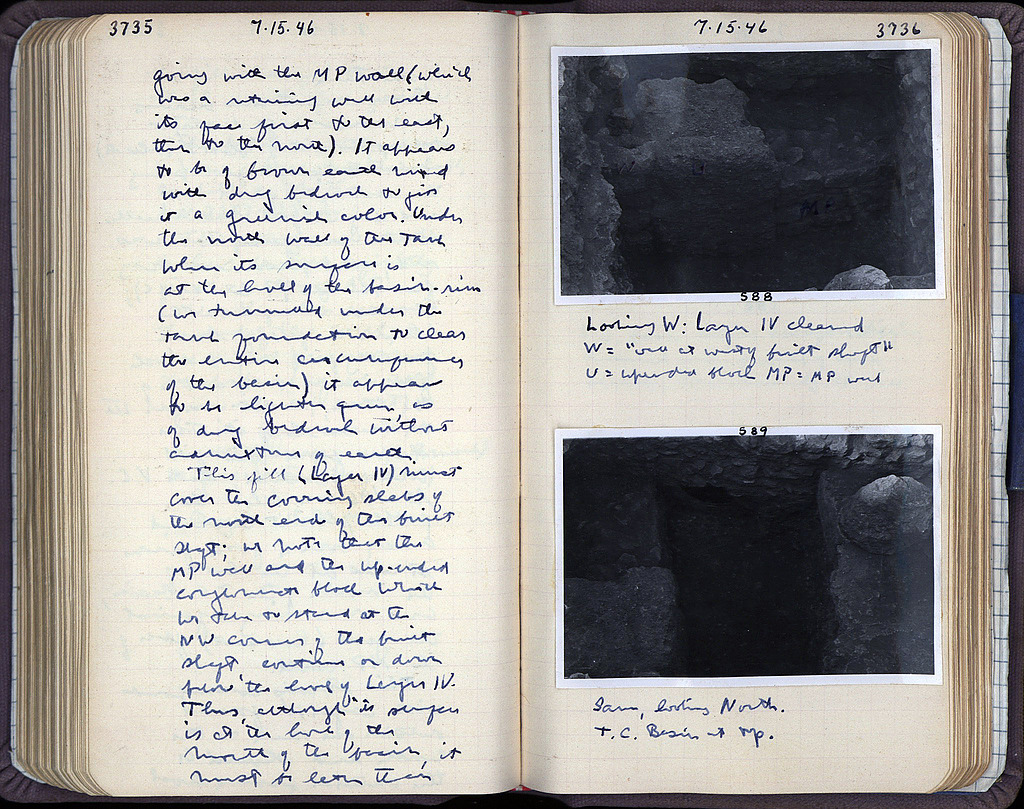 3735
7·15·46
going with the MP wall (which
was a retaining wall with
its face first to the east,
then to the north). It appears
to be of brown earth mixed
with dug bedrock to give
it a greenish color. Under
the north wall of the Tank
when its surface is
at the level of the basin-rim
(we tunnelled under the
tank foundation to clear
the entire circumference
of the basin) it appears
to be lighter green, as
of dug bedrock without
admixture of earth.
This fill (Layer IV) must
cover the covering slabs of
the north end of the built
shaft; we note that the
MP wall and the up-ended
conglomerate block which
we saw to stand at the
NW corner of the built
shaft, continue on down
below the level of Layer IV.
Thus, although its surface
is at the level of the
mouth of the basin, it
must be later than
7·15·46
3736
W
U
MP
588
Looking W: Layer IV cleared
W = "wall at west of built shaft"
U = upended block MP = MP wall
589
Same, looking North.
T.C. Basin at top.